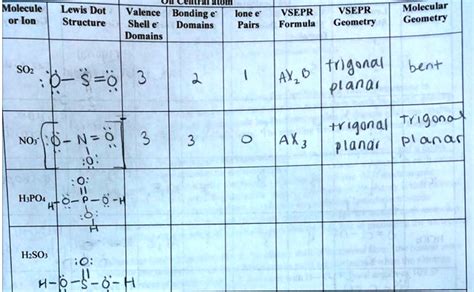 On Central atom
Molecule or Ion
Lewis Dot Structure
Valence Shell e⁻ Domains
Bonding e⁻ Domains
lone e⁻ Pairs
VSEPR Formula
VSEPR Geometry
Molecular Geometry
SO₂
O–S=O
3
2
1
AX₂
trigonal
planar
bent
NO₃⁻
O–N=O
O
3
3
0
AX₃
trigonal
planar
Trigonal
planar
H₃PO₄
O
H–O–P–O–H
O
H
H₂SO₃
O
H–O–S–O–H